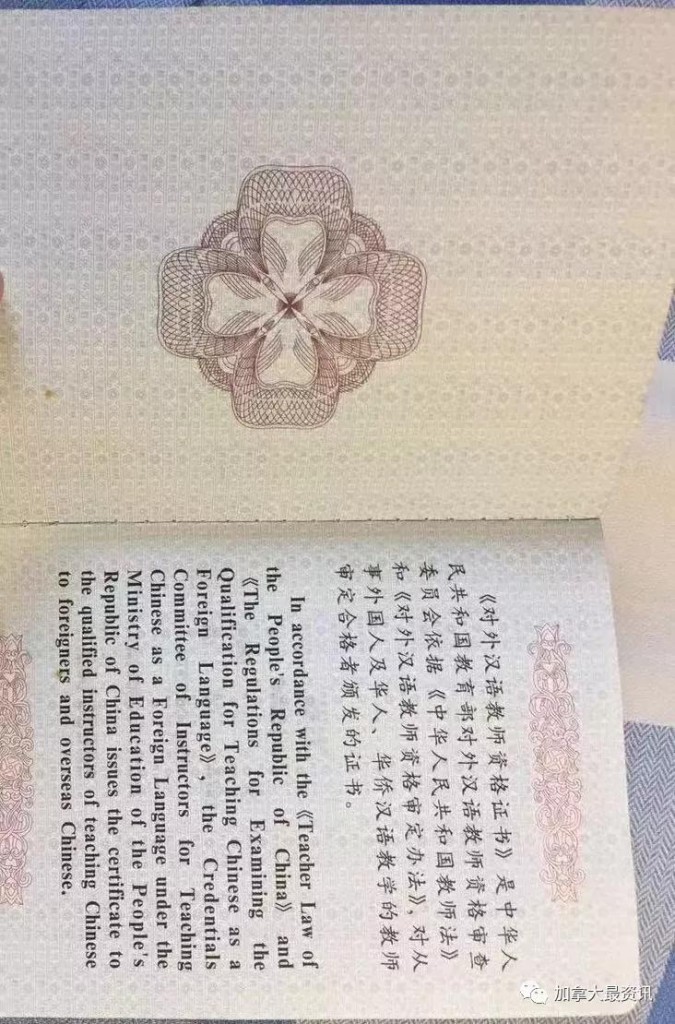 《对外汉语教师资格证书》是中华人
民共和国教育部对外汉语教师资格审查
委员会依据《中华人民共和国教师法》
和《对外汉语教师资格审定办法》，对从
事外国人及华人、华侨汉语教学的教师
审定合格者颁发的证书。
In accordance with the《Teacher Law of
the People's Republic of China》and
《The Regulations for Examining the
Qualification for Teaching Chinese as a
Foreign Language》, the Credentials
Committee of Instructors for Teaching
Chinese as a Foreign Language under the
Ministry of Education of the People's
Republic of China issues the certificate to
the qualified instructors of teaching Chinese
to foreigners and overseas Chinese.
加拿大最资讯